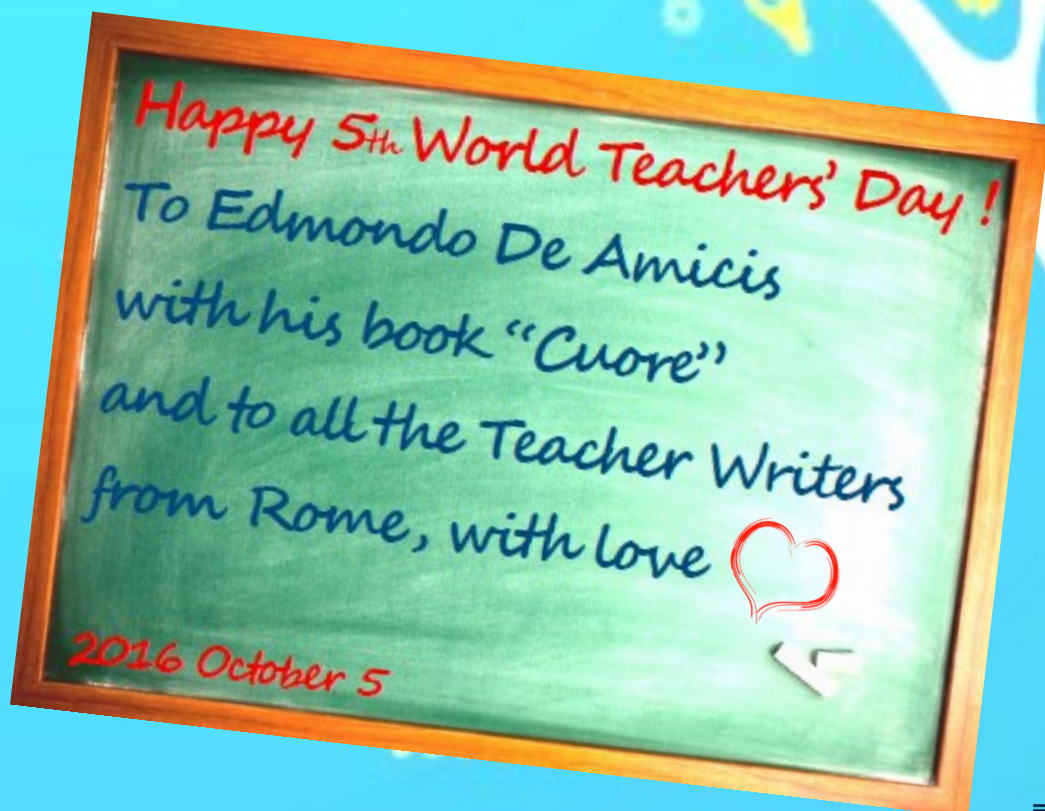 Happy 5th World Teachers' Day !
To Edmondo De Amicis
with his book “Cuore”
and to all the Teacher Writers
from Rome, with love
2016 October 5